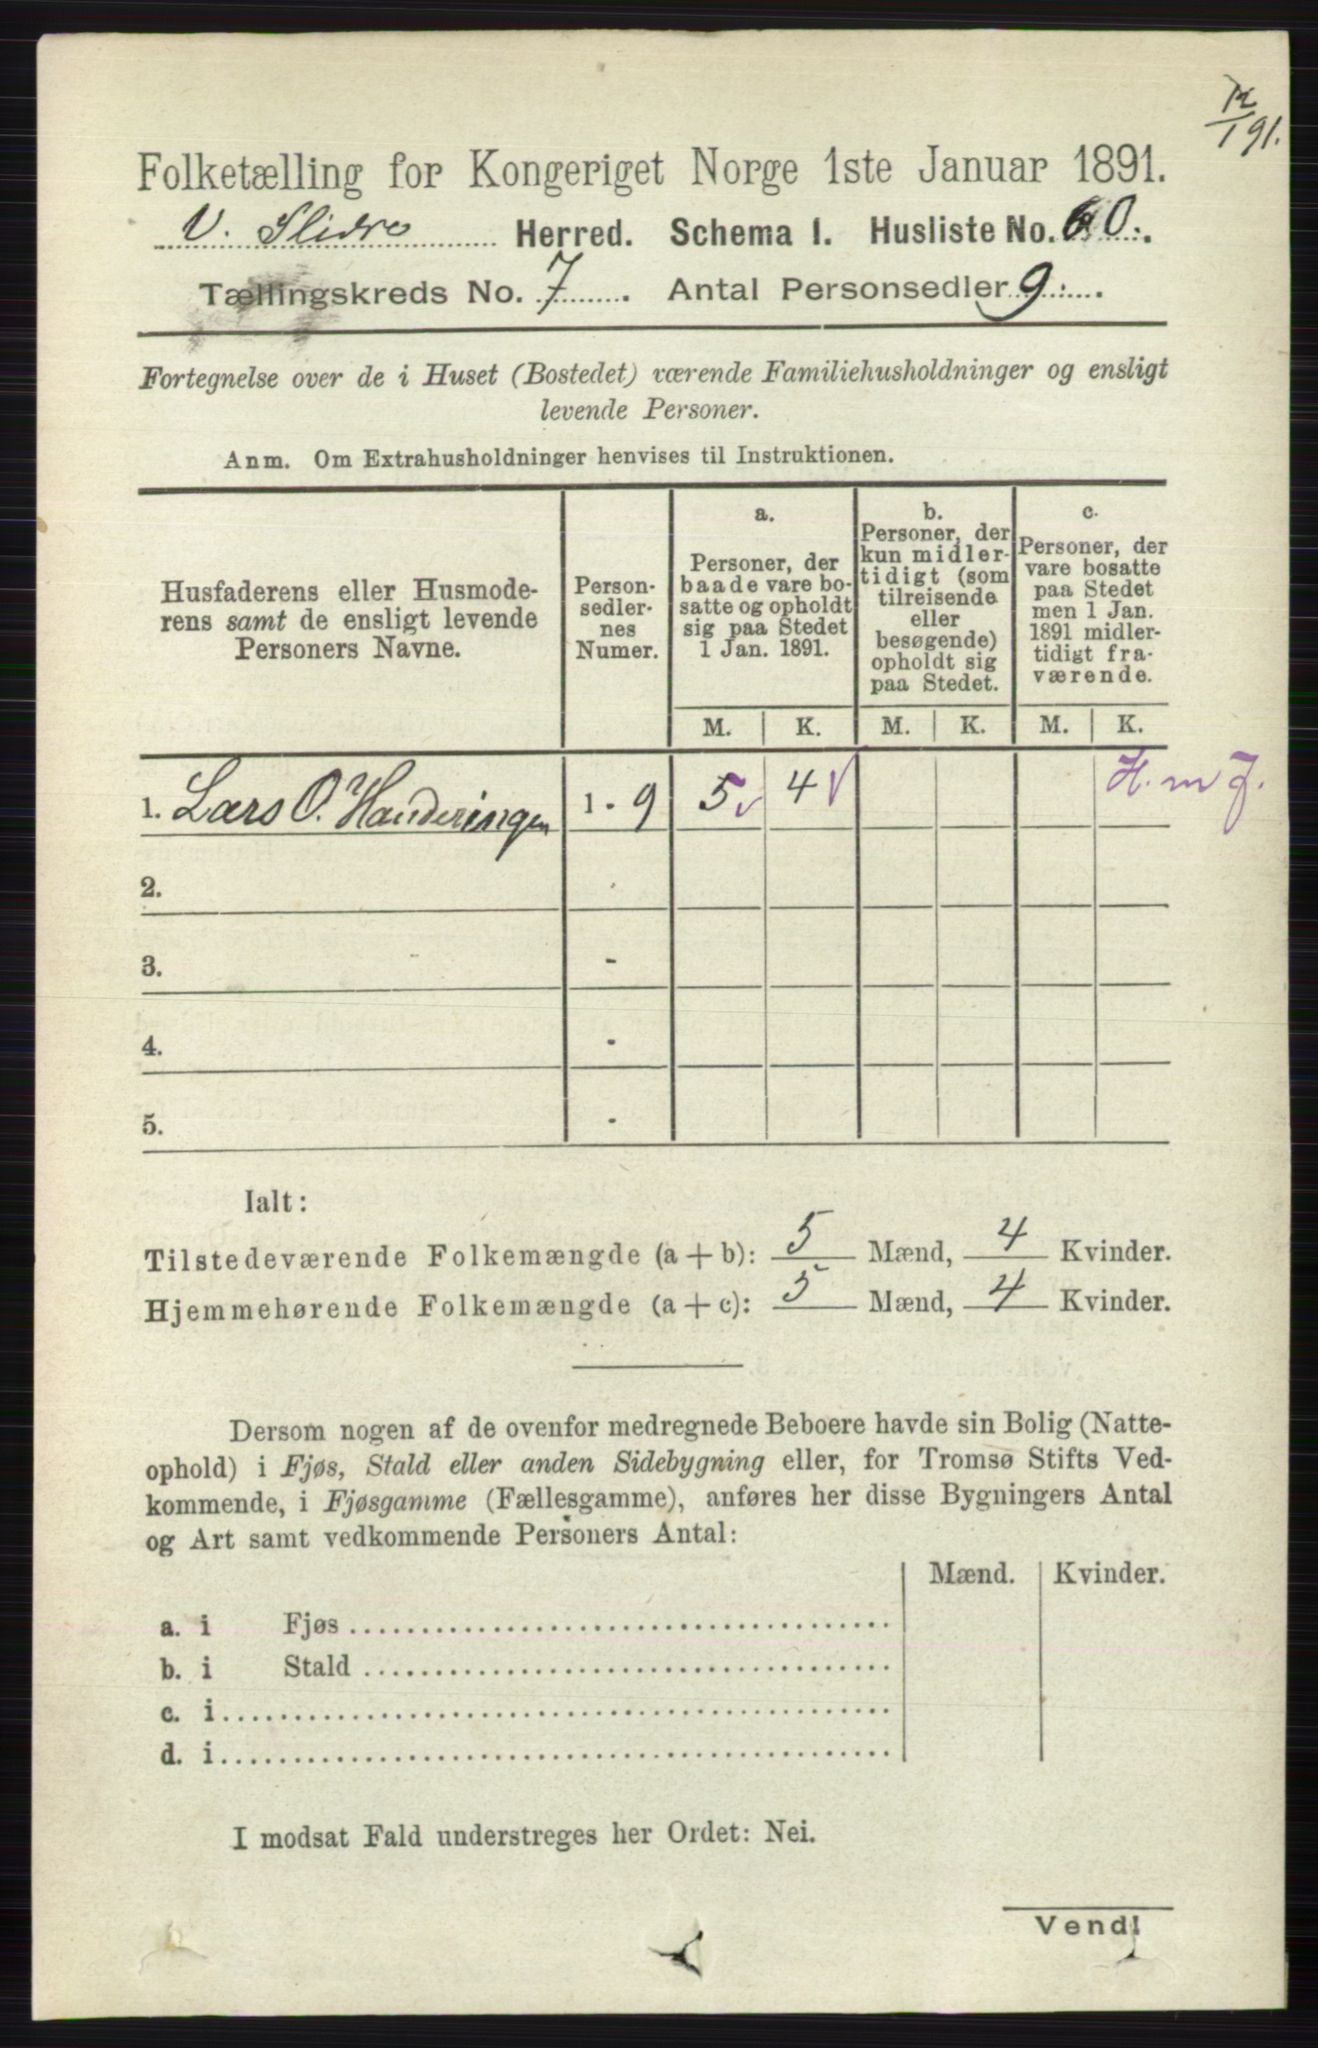 12/1 91.
Folketælling for Kongeriget Norge 1ste Januar 1891.
V. Slidre Herred. Schema 1. Husliste No. 60.
Tællingskreds No. 7. Antal Personsedler 9.
Fortegnelse over de i Huset (Bostedet) værende Familiehusholdninger og ensligt
levende Personer.
Anm. Om Extrahusholdninger henvises til Instruktionen.
Husfaderens eller Husmode-
rens samt de ensligt levende
Personers Navne.
Person-
sedler-
nes
Numer.
a.
Personer, der
baade vare bo-
satte og opholdt
sig paa Stedet
1 Jan. 1891.
b.
Personer, der
kun midler-
tidigt (som
tilreisende
eller
besøgende)
opholdt sig
paa Stedet.
c.
Personer, der
vare bosatte
paa Stedet
men 1 Jan.
1891 midler-
tidigt fra-
værende.
M. K. M. K. M. K.
1. Lars O. Handeringen 1 - 9 5 4 H. m J.
2.
3. -
4. -
5. -
Ialt:
Tilstedeværende Folkemængde (a + b): 5 Mænd, 4 Kvinder.
Hjemmehørende Folkemængde (a + c): 5 Mænd, 4 Kvinder.
Dersom nogen af de ovenfor medregnede Beboere havde sin Bolig (Natte-
ophold) i Fjøs, Stald eller anden Sidebygning eller, for Tromsø Stifts Ved-
kommende, i Fjøsgamme (Fællesgamme), anføres her disse Bygningers Antal
og Art samt vedkommende Personers Antal:
Mænd. Kvinder.
a. i Fjøs
b. i Stald
c. i
d. i
I modsat Fald understreges her Ordet: Nei.
Vend!